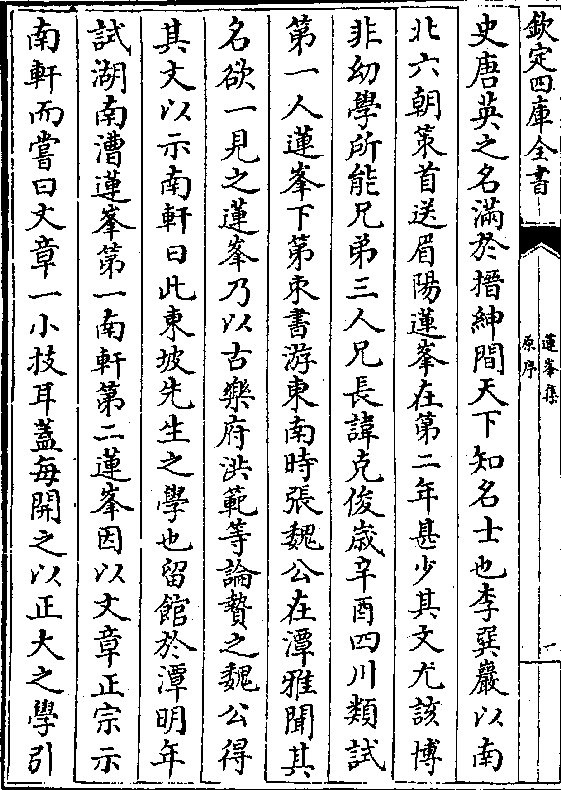 欽定四庫全書
蓮峯集
原序
一
史唐英之名滿於搢紳間天下知名士也李㢲巖以南
北六朝策首送眉陽蓮峯在第二年甚少其文尤該博
非幼學所能兄弟三人兄長諱克俊歲辛酉四川類試
第一人蓮峯下第束書游東南時張魏公在潭雅聞其
名欲一見之蓮峯乃以古樂府洪範等論贄之魏公得
其文以示南軒曰此東坡先生之學也留館於潭明年
試湖南漕蓮峯第一南軒第二蓮峯因以文章正宗示
南軒而嘗曰文章一小技耳蓋每開之以正大之學引